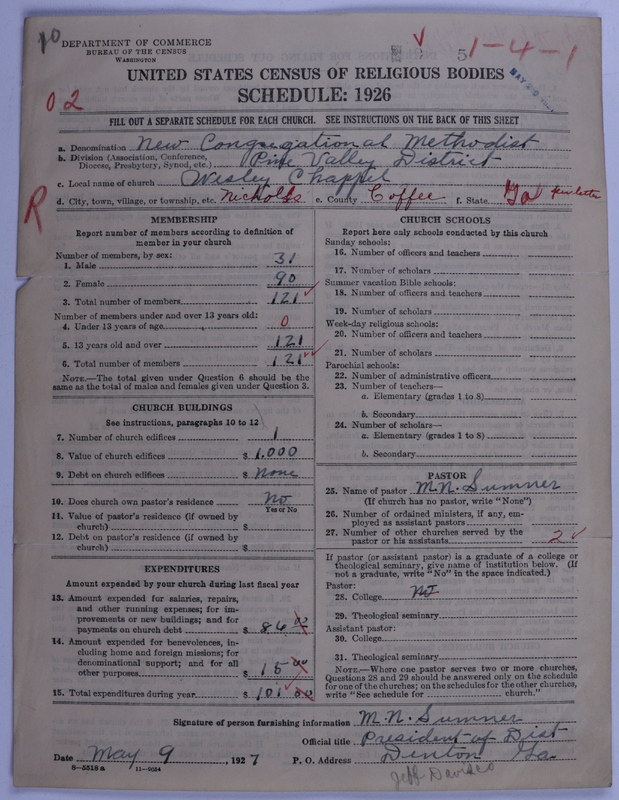 10 DEPARTMENT OF COMMERCE
BUREAU OF THE CENSUS
WASHINGTON
5 1-4-1
UNITED STATES CENSUS OF RELIGIOUS BODIES
SCHEDULE: 1926
02
FILL OUT A SEPARATE SCHEDULE FOR EACH CHURCH. SEE INSTRUCTIONS ON THE BACK OF THIS SHEET
a. Denomination New Congregational Methodist
b. Division (Association, Conference, Diocese, Presbytery, Synod, etc.) Pine Valley District
c. Local name of church Wesley Chappel
d. City, town, village, or township, etc. Nicholls e. County Coffee f. State Ga per letter
R
MEMBERSHIP
Report number of members according to definition of
member in your church
Number of members, by sex:
1. Male 31
2. Female 90
3. Total number of members 121
Number of members under and over 13 years old:
4. Under 13 years of age 0
5. 13 years old and over 121
6. Total number of members 121
NOTE.—The total given under Question 6 should be the
same as the total of males and females given under Question 3.
CHURCH BUILDINGS
See instructions, paragraphs 10 to 12
7. Number of church edifices 1
8. Value of church edifices $ 1,000
9. Debt on church edifices $ None
10. Does church own pastor's residence No
Yes or No
11. Value of pastor's residence (if owned by
church) $
12. Debt on pastor's residence (if owned by
church) $
EXPENDITURES
Amount expended by your church during last fiscal year
13. Amount expended for salaries, repairs,
and other running expenses; for im-
provements or new buildings; and for
payments on church debt $ 86 00
14. Amount expended for benevolences, in-
cluding home and foreign missions; for
denominational support; and for all
other purposes $ 15 00
15. Total expenditures during year $ 101 00
CHURCH SCHOOLS
Report here only schools conducted by this church
Sunday schools:
16. Number of officers and teachers
17. Number of scholars
Summer vacation Bible schools:
18. Number of officers and teachers
19. Number of scholars
Week-day religious schools:
20. Number of officers and teachers
21. Number of scholars
Parochial schools:
22. Number of administrative officers
23. Number of teachers—
a. Elementary (grades 1 to 8)
b. Secondary
24. Number of scholars—
a. Elementary (grades 1 to 8)
b. Secondary
PASTOR
25. Name of pastor M.N. Sumner
(If church has no pastor, write "None")
26. Number of ordained ministers, if any, em-
ployed as assistant pastors
27. Number of other churches served by the
pastor or his assistants 2
If pastor (or assistant pastor) is a graduate of a college or
theological seminary, give name of institution below. (If
not a graduate, write "No" in the space indicated.)
Pastor:
28. College No
29. Theological seminary
Assistant pastor:
30. College
31. Theological seminary
NOTE.—Where one pastor serves two or more churches,
Questions 28 and 29 should be answered only on the schedule
for one of the churches; on the schedules for the other churches,
write "See schedule for church."
Signature of person furnishing information M.N. Sumner
Official title President of Dist
Date May 9, 1927 P. O. Address Denton Ga.
8-5515a 11-9034
Jeff Davis Co